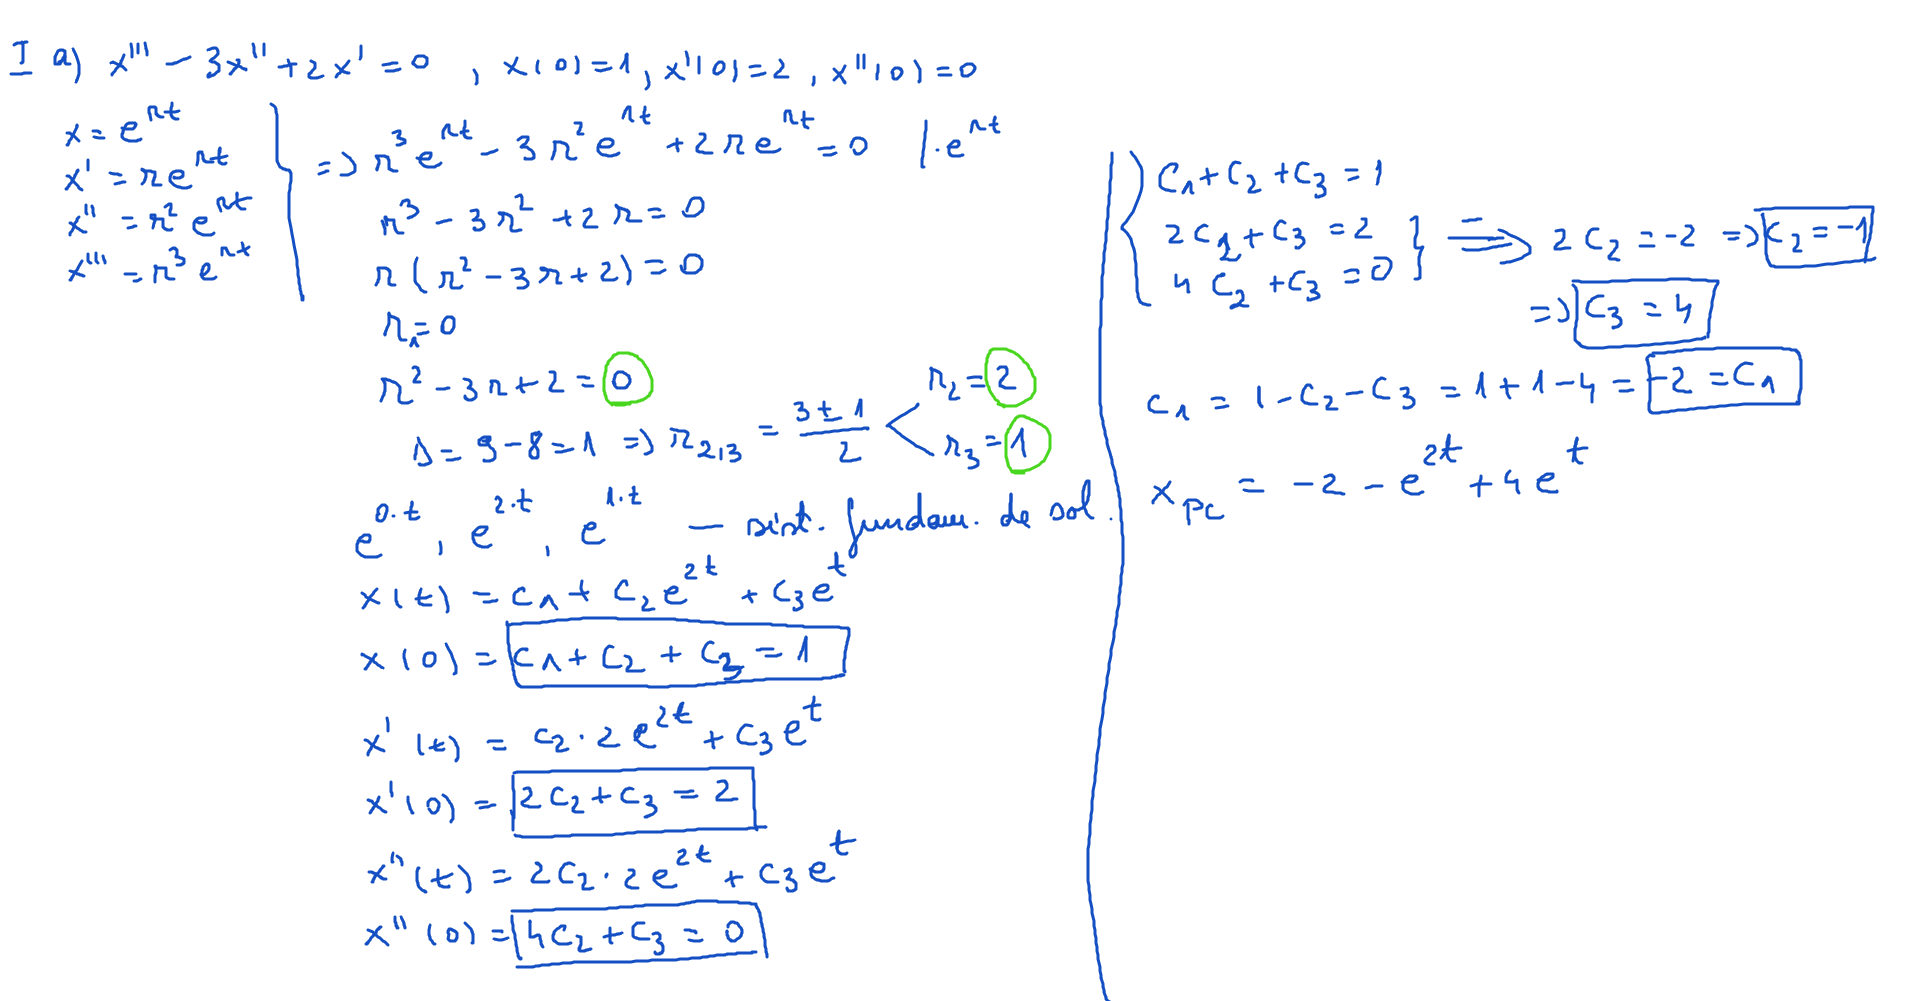 I a) x''' - 3x'' + 2x' = 0 , x(0) = 1, x'(0) = 2 , x''(0) = 0
x = e^{rt}
x' = re^{rt}
x'' = r² e^{rt}
x''' = r³ e^{rt}
=> r³ e^{rt} - 3r² e^{rt} + 2re^{rt} = 0 | · e^{rt}
r³ - 3r² + 2r = 0
r(r² - 3r + 2) = 0
r₁ = 0
r² - 3r + 2 = 0
Δ = 9 - 8 = 1 => r₂,₃ = (3 ± 1)/2
r₂ = 2
r₃ = 1
e^{0·t} , e^{2·t} , e^{1·t} — sist. fundam. de sol.
x(t) = c₁ + c₂e^{2t} + c₃e^t
x(0) = c₁ + c₂ + c₃ = 1
x'(t) = c₂ · 2e^{2t} + c₃e^t
x'(0) = 2c₂ + c₃ = 2
x''(t) = 2c₂ · 2e^{2t} + c₃e^t
x''(0) = 4c₂ + c₃ = 0
c₁ + c₂ + c₃ = 1
2c₂ + c₃ = 2
4c₂ + c₃ = 0
=> 2c₂ = -2 => c₂ = -1
=> c₃ = 4
c₁ = 1 - c₂ - c₃ = 1 + 1 - 4 = -2 = c₁
x_{PC} = -2 - e^{2t} + 4e^t